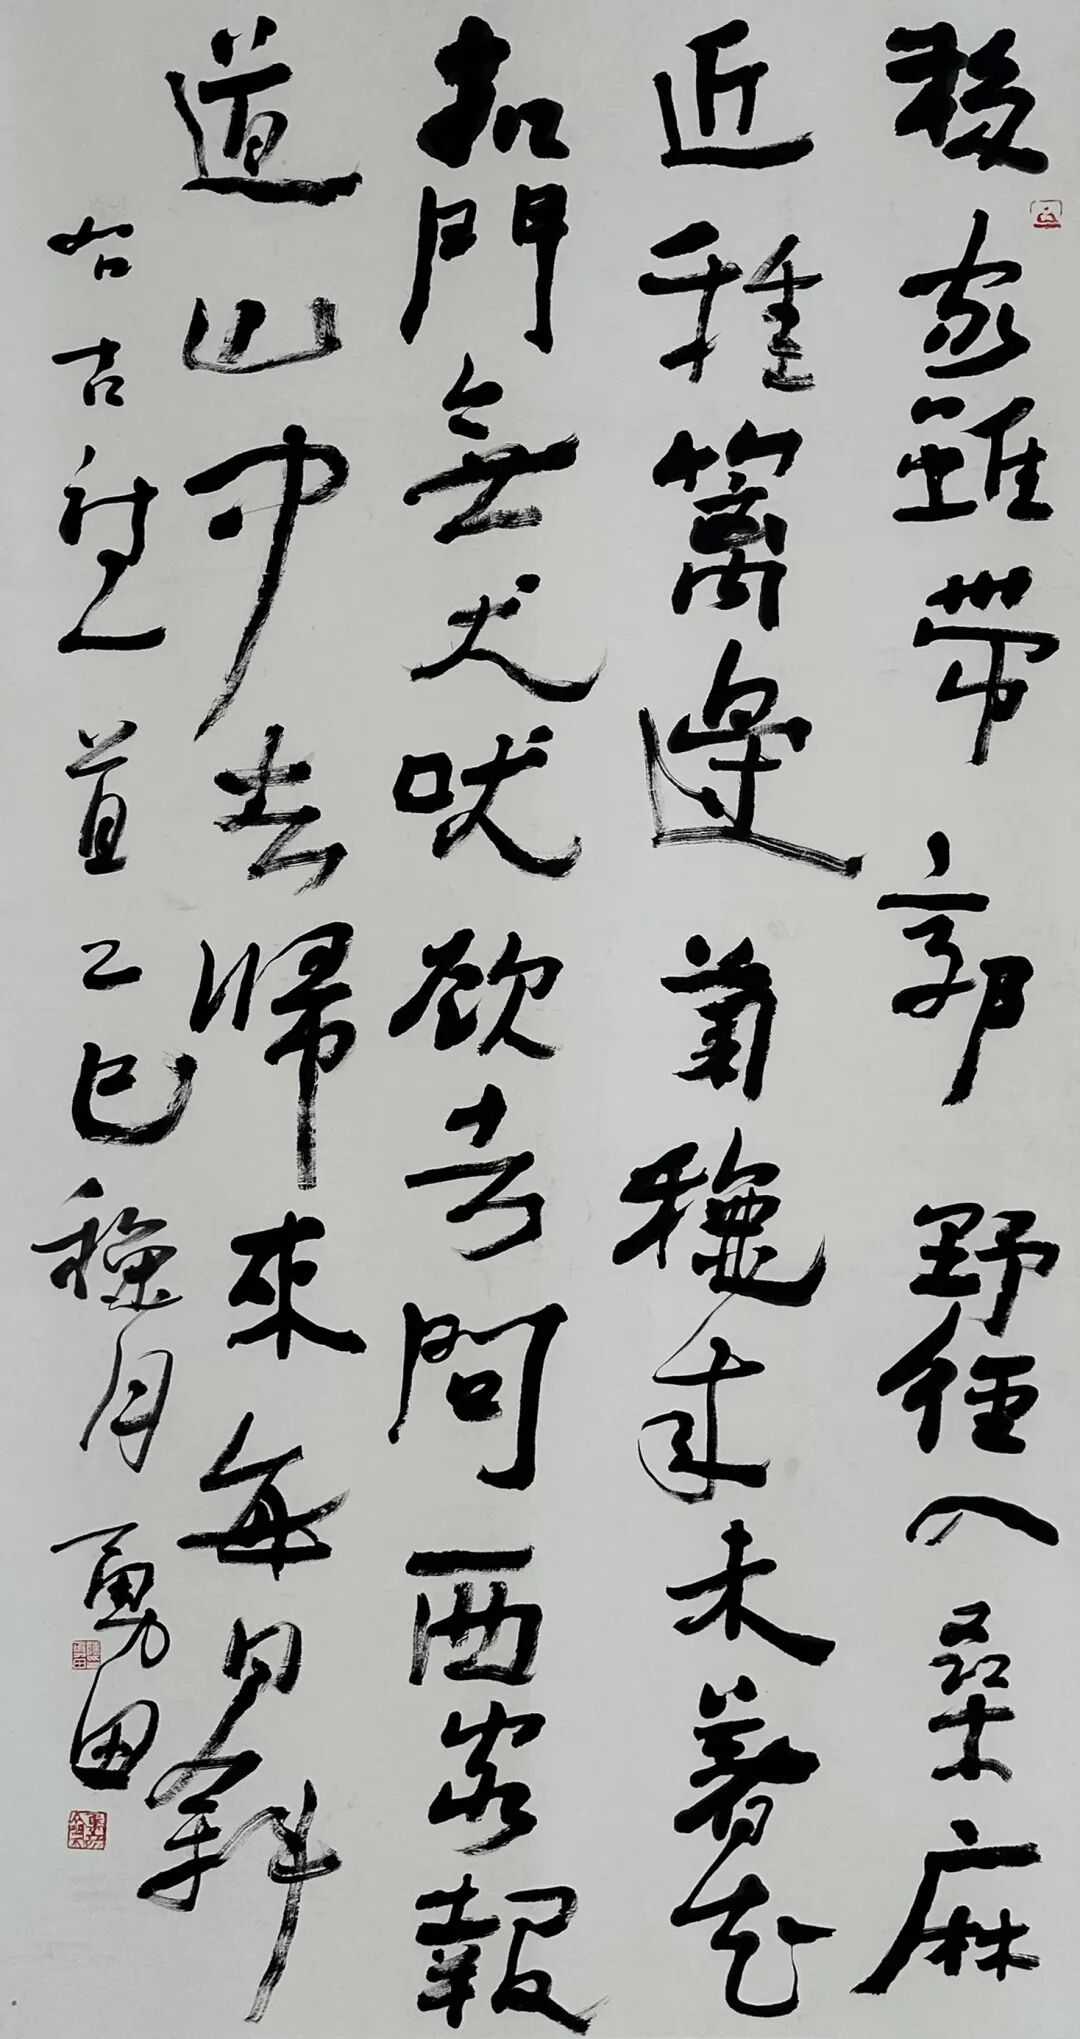 移家雖帶郭野徑入桑麻
近種篱邊菊穐來未著花
扣門無犬吠欲去問西家報
道山中去歸來每日斜
右古德一首乙巳穐月勇田